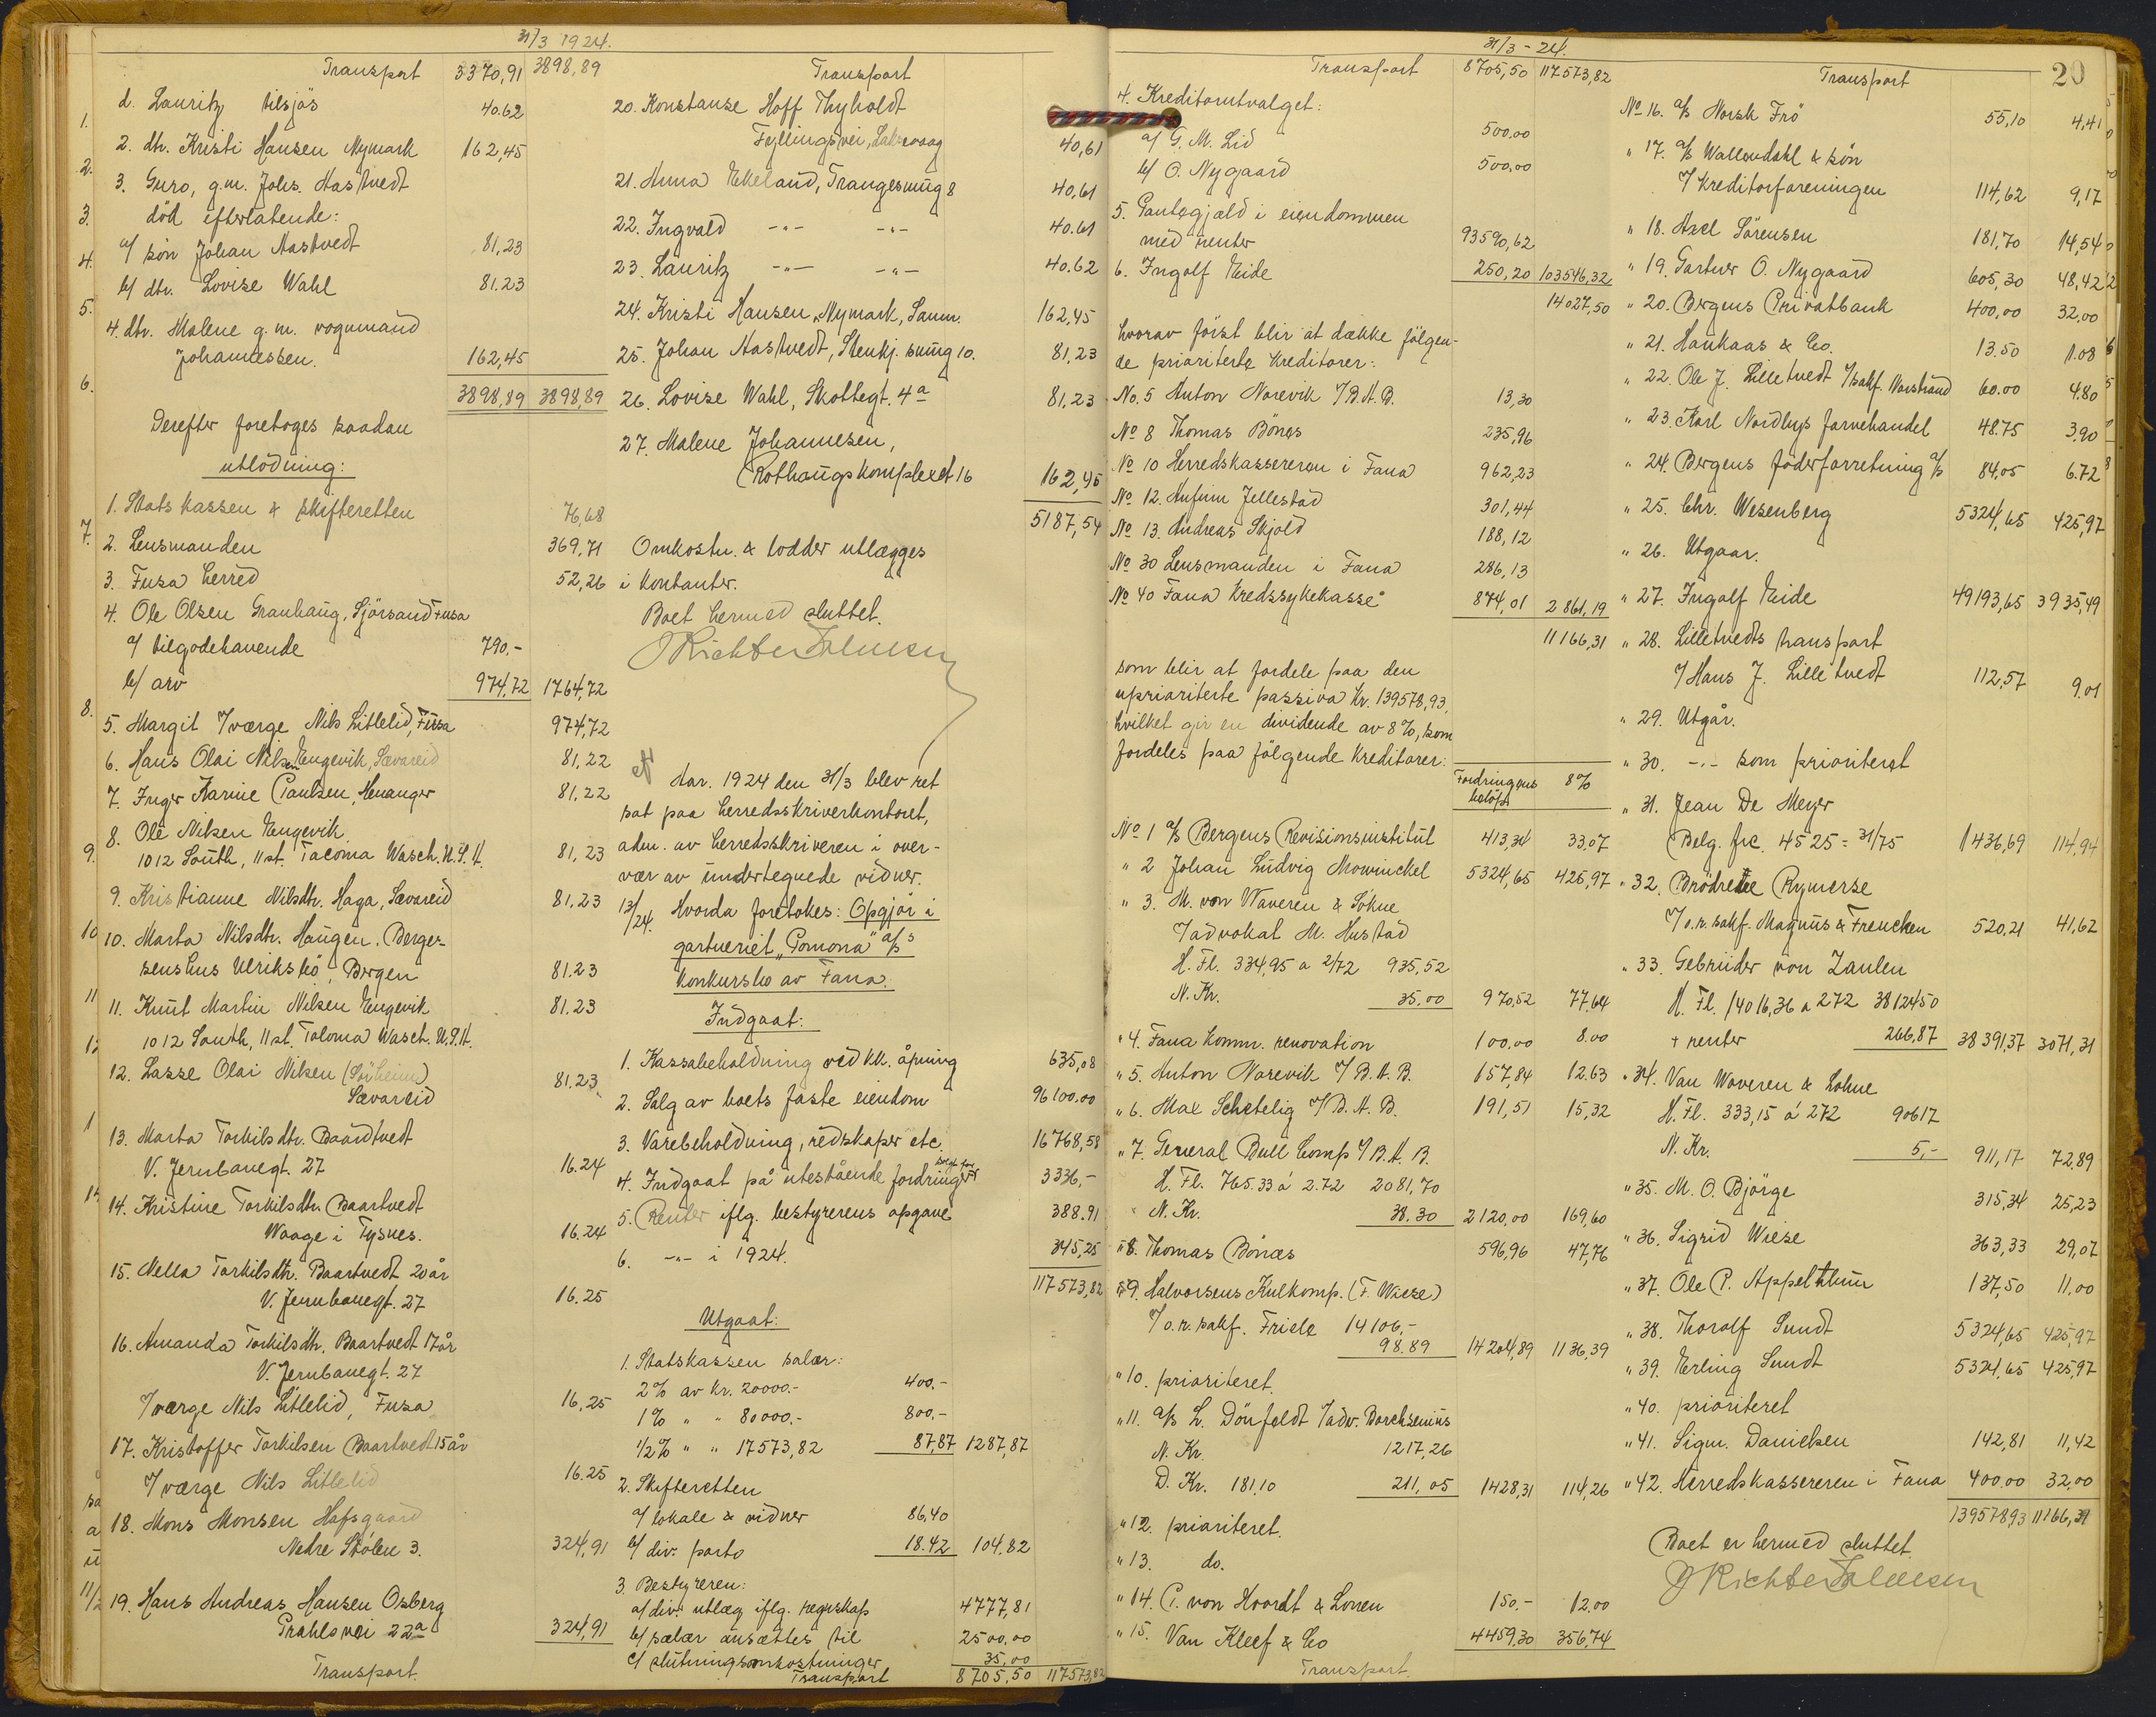 31/3 1924.
Transport 3370,91 3898,89
d. Lauritz tilsjös 40.62
2. dtr. Kristi Hansen Nymark 162,45
3. Guro, g.m. Johs. Hastvedt
död efterlatende:
a/ sön Johan Hastvedt 81,23
b/ dtr. Lovise Wahl 81.23
4. dtr. Malene g.m. vognmand
Johannessen. 162,45
3898,89 3898,89
Derefter foretoges saadan
utlodning:
1. Statskassen & skifteretten 76,68
2. Lensmanden 369,71
3. Fusa herred 52,26
4. Ole Olsen Granhaug, Sjörsand Fusa
a/ tilgodehavende 790.-
b/ arv 974,72 1764,72
5. Margit v/værge Nils Litlelid, Fusa 974,72
6. Hans Olai Nilsen Engevik, Sævareid 81,22
7. Inger Karine Paulsen, Henanger 81,22
8. Ole Nilsen Engevik
1012 South, 11 st. Tacoma Wasch. U.S.A. 81,23
9. Kristianne Nilsdtr. Haga, Sævareid 81,23
10. Marta Nilsdtr. Haugen. Berger-
senshus Ulriksbö, Bergen 81.23
11. Knut Martin Nilsen Engevik 81.23
1012 South, 11 st. Taloma Wasch. U.S.A.
12. Lasse Olai Nilsen (Solheim)
Sævareid 81.23
13. Marta Torkilsdtr. Baardtvedt
V. Jernbanegt. 27 16.24
14. Kristine Torkilsdtr. Baartvedt
Waage i Tysnes. 16.24
15. Nella Torkilsdtr. Baartvedt 20 år
V. Jernbanegt. 27 16.25
16. Amanda Torkilsdtr. Baartvedt 17 år
V. Jernbanegt. 27
v/værge Nils Litlelid, Fusa 16,25
17. Kristoffer Torkilsen Baartvedt 15 år
v/værge Nils Litlelid 16.25
18. Mons Monsen Hafsgaard
Nedre Stölen 3. 324,91
19. Hans Andreas Hansen Osberg
Prahlsvei 22a 324,91
Transport.
Transport
20. Konstanse Hoff Thyholdt
Fyllingsvei, Laksevaag 40,61
21. Anna Ekeland, Trangesmug 8 40,61
22. Ingvald -"- -"- 40.61
23. Lauritz -"- -"- 40.62
24. Kristi Hansen, Nymark, Samn. 162,45
25. Johan Hastvedt, Stenkj. smug 10. 81,23
26. Lovise Wahl, Skottegt. 4a 81,23
27. Malene Johannesen,
Rothaugskomplexet 16 162,45
5187,54
Omkostn. & lodder utlægges
i kontanter.
Boet hermed sluttet.
J Richter Salvesen
Aar. 1924 den 31/3 blev ret
sat paa herredsskriverkontoret,
adm. av herredsskriveren i over-
vær av undertegnede vidner.
13/24. Hvorda foretokes: Opgjör i
gartneriet "Pomona" a/s's
konkursbo av Fana.
Indgaat:
1. Kassabeholdning ved kk. åpning 635,08
2. Salg av boets faste eiendom 96100.00
3. Varebeholdning, redskaper etc. 16768,58
4. Indgaat på utestående fordringer 3336,-
5. Renter iflg. bestyrerens opgave 388.91
6. -"- i 1924. 345,25
117573,82
Utgaat:
1. Statskassen salær:
2% av Kr. 20000.- 400.-
1% " " 80000.- 800.-
1/2% " " 17573,82 87,87 1287,87
2. Skifteretten
a/ lokale & vidner 86,40
b/ div. porto 18.42 104,82
3. Bestyreren:
a/ div. utlæg iflg. regnskap 4777,81
b/ salær ansættes til 2500,00
c/ slutningsomkostninger 35,00
Transport 8705,50 117573,82
31/3 - 24.
20
Transport 8705,50 117573,82
4. Kreditorutvalget:
a/ G. M. Lid 500.00
b/ O. Nygaard 500.00
5. Pantegjæld i eiendommen
med renter 93590,62
6. Ingolf Eide 250,20 103546,32
14027,50
hvorav först blir at dække fölgen-
de prioriterte kreditorer:
No. 5 Anton Norevik v/B.A.B. 13,30
No 8 Thomas Bönes 235,96
No 10 Herredskassereren i Fana 962,23
No 12. Anfinn Jellestad 301,44
No 13. Andreas Skjold 188,12
No 30 Lensmanden i Fana 286,13
No 40 Fana Kredssykekasse 874,01 2861,19
11166,31
som blir at fordele paa den
uprioriterte passiva Kr. 139578,93,
hvilket gir en dividende av 8%, som
fordeles paa fölgende kreditorer:
Fordringens belöp 8%
No 1 a/s Bergens Revisionsinstitut 413,34 33.07
" 2 Johan Ludvig Mowinckel 5324,65 425,97
" 3. M. von Waveren & Söhne
v/advokat M. Hustad
H. Fl. 334,95 a 2/72 935,52
N. Kr. 35.00 970,52 77.64
" 4. Fana komm. renovation 100.00 8.00
" 5. Anton Norevik v/B.A.B. 157,84 12.63
" 6. Max Schetelig v/B.A.B. 191,51 15,32
" 7. General Bull Comp v/B.A.B.
H. Fl. 765.33 á 2.72 2081,70
" N. Kr. 38.30 2120,00 169,60
" 8. Thomas Bönes 596,96 47,76
" 9. Halvorsens Kulkomp. (F. Wiese)
v/o.r.sakf. Friele 14106,-
98.89 14204,89 1136,39
" 10. prioriteret.
" 11. a/s L. Dönfeldt v/adv. Borchsenius
N. Kr. 1217,26
D. Kr. 181,10 211,05 1428,31 114,26
" 12. prioriteret.
" 13. do.
" 14. P. von Hoordt & Lonen 150.- 12.00
" 15. Van Kleef & Co 4459,30 356,74
Transport.
Transport
No 16. a/s Norsk Frö 55,10 4,41
" 17. a/s Wallendahl & sön
v/kreditorforeningen 114,62 9,17
" 18. Axel Sörensen 181,70 14,54
" 19. Gartner O. Nygaard 605,30 48,42
" 20. Bergens Privatbank 400,00 32,00
" 21. Haukaas & Co. 13.50 1.08
" 22. Ole J. Lilletvedt v/sakf. Norstrand 60.00 4.80
" 23. Karl Nordbys farvehandel 48.75 3,90
" 24. Bergens foderforretning a/s 84,05 6.72
" 25. Chr. Wesenberg 5324,65 425,97
" 26. Utgaar.
" 27. Ingolf Eide 49193,65 3935,49
" 28. Lilletvedts transport
v/Hans J. Lilletvedt 112,57 9,01
" 29. Utgår.
" 30. -"- som prioriteret
" 31. Jean De Meyer
Belg. frc. 4525 = 31/75 1436,69 114,94
" 32. Brödrene Rymerse
v/o.r.sakf. Magnus & Frencken 520,21 41,62
" 33. Gebrüder von Zanten
H. Fl. 14016,36 a 272 38124.50
+ renter 266,87 38391,37 3071,31
" 34. Van Waveren & Sohne
H. Fl. 333,15 á 272 906.17
N. Kr. 5,- 911,17 72,89
" 35. M. O. Björge 315,34 25,23
" 36. Sigrid Wiese 363,33 29,07
" 37. Ole P. Appelthun 137,50 11,00
" 38. Thorolf Sundt 5324,65 425,97
" 39. Erling Sundt 5324,65 425,97
" 40. prioriteret
" 41. Sigm. Danielsen 142,81 11,42
" 42. Herredskassereren i Fana 400.00 32,00
139578,93 11166,31
Boet er hermed sluttet.
J Richter Salvesen